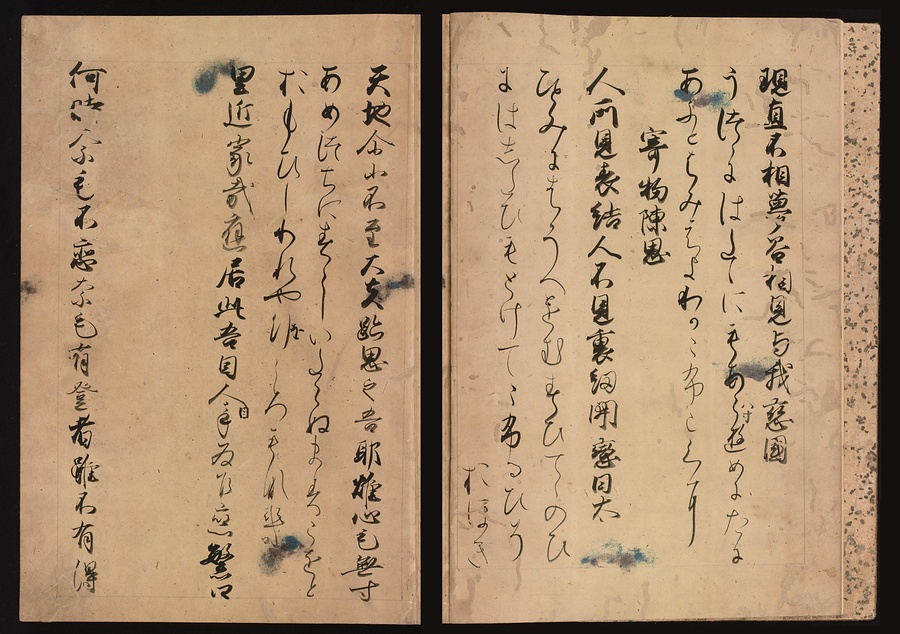 現直不相夢谷相見与我恋国
うつゝにはたゝにもあらすゆめにたに
あふとはみえよわかこふらくに
寄物陳思
人所見表結人不見裏紐開戀日太
ひとみにはうへをむすひてしのひ
にはしたひもとけてこふるひそ
おほき
天地尓小不至大夫跡思之吾耶雄心毛無寸
あめつちにすこしいたらぬますらをと
おもひしわれやをこゝろもなき
里近家哉應居此吾目人目乎為乍戀繁口
何時奈毛不恋奈毛有登者雖不有得